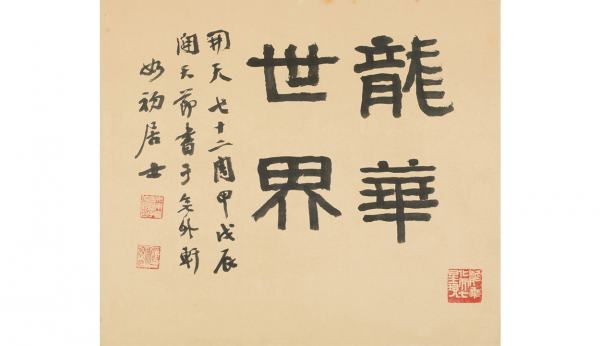 龍華
世界
開天七十二周甲戊辰
開天節書于外軒
如初居士